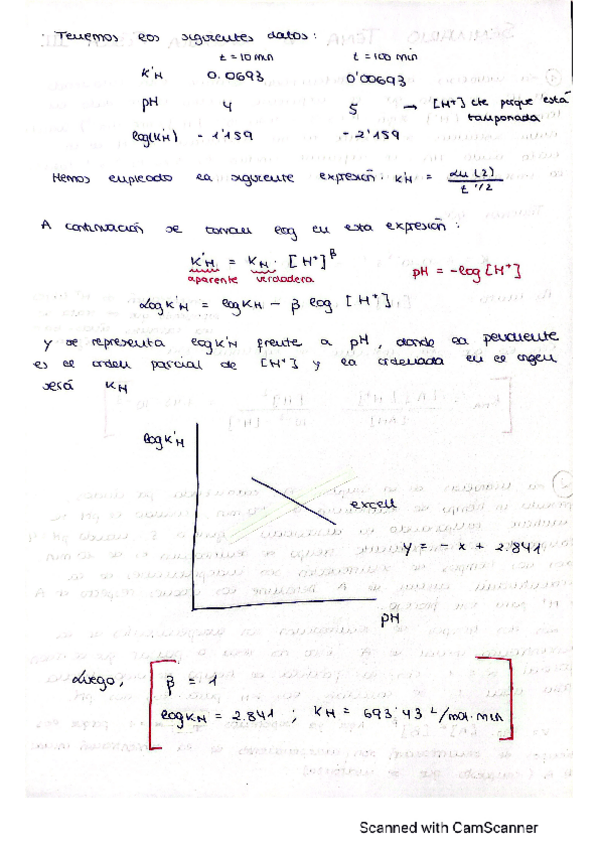 · Tenemos los siguientes datos:
t = 10 min t = 100 min
K'H 0.0693 0'00693
pH 4 5 → [H+] cte porque está
tamponada
log(K'H) - 1'159 - 2'159
Hemos empleado la siguiente expresión: K'H = Ln (2) / t 1/2
A continuación se toman log en esta expresión:
K'H = KH · [H+]^β
aparente verdadera pH = -log [H+]
Log K'H = log KH - β log [H+]
y se representa log K'H frente a pH, donde la pendiente
es el orden parcial de [H+] y la ordenada en el origen
será KH
log K'H
excell
y = - x + 2.841
pH
Luego,
β = 1
log KH = 2.841 ; KH = 693'43 L/mol·min
Scanned with CamScanner